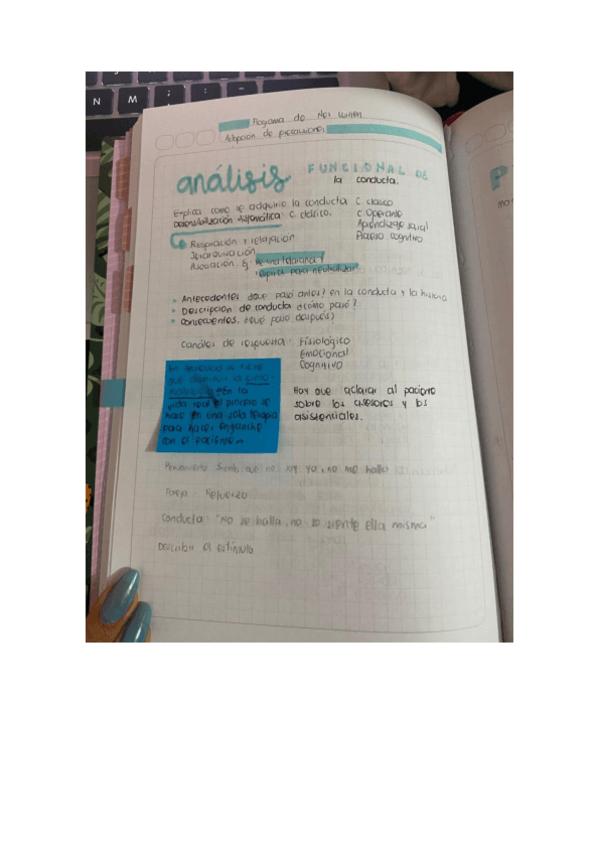 N M ; :
Programa de
Adopcion de precauciones
análisis FUNCIONAL DE
la conducta.
Explica como se adquirio la conducta
desensibilización sistemática C. clásico.
C. clasico
C Operante
Aprendizaje social
Proceso cognitivo
Respiración y relajación
Jerarquización
para neutralizar
Antecedentes ¿que pasó antes? en la conducta y la historia
Descripción de conducta ¿cómo pasó?
Consecuentes. ¿qué paso después?
Canales de respuesta: Fisiológico
Emocional
Cognitivo
que disminuir la
En la
vida real el proceso se
hace en una sola terapia
para hacer enganche
con el paciente
Hay que aclarar al paciente
sobre los asesores y los
asistenciales.
Pensamiento Siento que no soy yo, no me hallo
Refuerzo
Conducta: "No se halla, no se siente ella misma"
Describir el estímulo